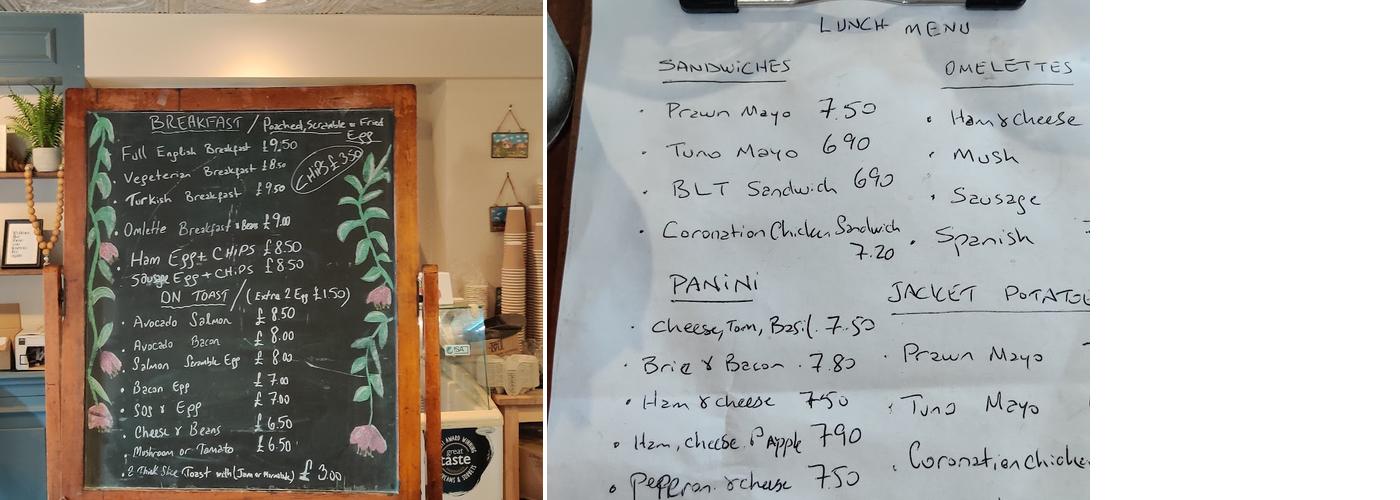 BREAKFAST / Poached, Scramble or Fried
Egg
Full English Breakfast £9.50
Vegeterian Breakfast £8.50
CHIPS £3.50
Turkish Breakfast £9.50
Omlette Breakfast + Beans £9.00
Ham Egg + CHIPS £8.50
Sausage Egg + CHIPS £8.50
ON TOAST / (Extra 2 Egg £1.50)
Avocado Salmon £8.50
Avocado Bacon £8.00
Salmon Scramble Egg £8.00
Bacon Egg £7.00
SOS & Egg £7.00
Cheese & Beans £6.50
Mushroom or Tomato £6.50
2 Thick Slice Toast with (Jam or Marmalade) £3.00
great
taste
LUNCH MENU
SANDWICHES
Prawn Mayo 7.50
Tuna Mayo 690
BLT Sandwich 690
Coronation Chicken Sandwich
7.20
PANINI
Cheese, Tom, Basil. 7.50
Brie & Bacon. 7.80
Ham & cheese 750
Ham, cheese. P Apple 790
Pepperoni & cheese 750
OMELETTES
Ham & cheese
Mush
Sausage
Spanish
JACKET POTATOE
Prawn Mayo
Tuna Mayo
Coronation chicke